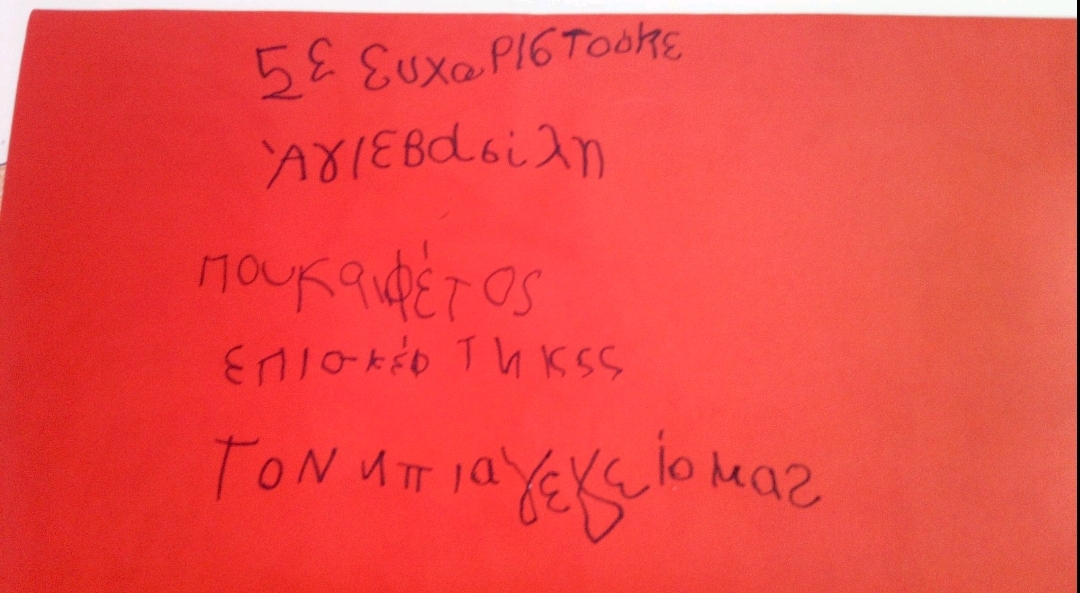 Σε ευχαριστούμε
Άγιε Βασίλη
που και φέτος
επισκέφτηκες
το νηπιαγωγείο μας